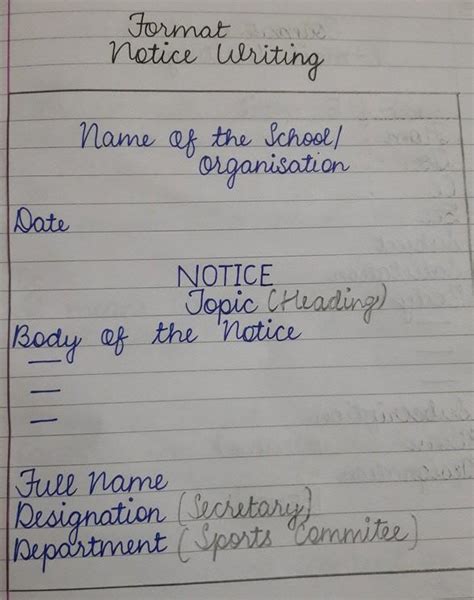 Format
Notice Writing
Name of the School/
Organisation
Date
NOTICE
Topic (Heading)
Body of the Notice
—
—
—
Full Name
Designation (Secretary)
Department (Sports Commitee)